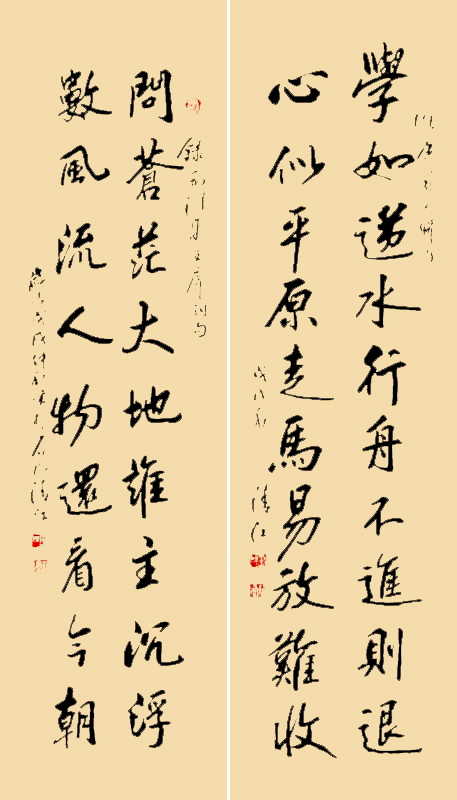 學如逆水行舟不進則退
心似平原走馬易放難收
戊戌
清江
問蒼茫大地誰主沉浮
數風流人物還看今朝